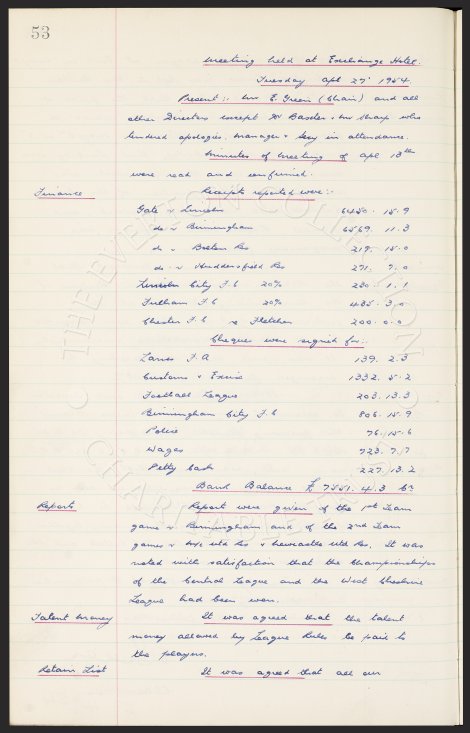 53
Meeting held at Exchange Hotel.
Tuesday Apl 27th 1954.
Present:- Mr E. Green (Chair) and all
other Directors except Dr Baxter & Mr Sharp who
tendered apologies. Manager & Secy in attendance.
Minutes of Meeting of Apl 13th
were read and confirmed.
Finance Receipts reported were:-
Gate v Lincoln 6450. 15. 9
do v Birmingham 6569. 11. 3
do v Bolton Res 219. 15. 0
do v Huddersfield Res 271. 7. 0
Lincoln City F.C 20% 230. 1. 1
Fulham F.C 20% 435. 3. 0
Chester F.C re Fletcher 200. 0. 0
Cheques were signed for:-
Lancs F.A 139. 2. 3
Customs & Excise 1332. 5. 2
Football League 203. 13. 3
Birmingham City F.C 806. 15. 9
Police 76. 15. 6
Wages 723. 7. 7
Petty Cash 227. 13. 2
Bank Balance £7551. 4. 3 Cr
Reports Report were given of the 1st Team
game v. Birmingham and of the 2nd Team
games v Utd Res v Newcastle Utd Res. It was
noted with satisfaction that the Championships
of the Central League and the West Cheshire
League had been won.
Talent Money It was agreed that the talent
money allowed by League Rules be paid to
the players.
Retain List It was agreed that all our
THE EVERTON COLLECTION
CHARITABLE TRUST